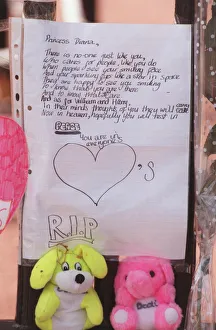 Princess Diana,
There is no-one quite like you,
Who cares for people, like you do
When people see your smiling face
And your sparkling eyes like a star in Space
They are happy to see you smiling
To know that you are there
And to know that
And as for William and Harry,
In their minds thoughts of you they will carry
live in heaven, hopefully you will rest in
PEACE
You are
everyone's
♡'s
R.I.P